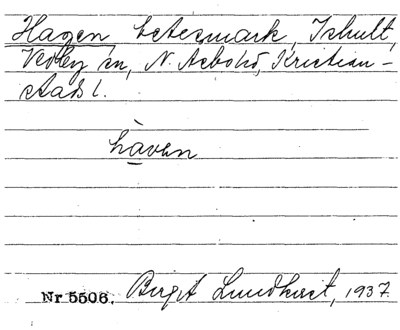 Hagen betesmark, Tshult,
Vedby sn, N. Åsbohd, Kristian-
stads l.
håven
Nr 5506. Birgit Lundkvist, 1937